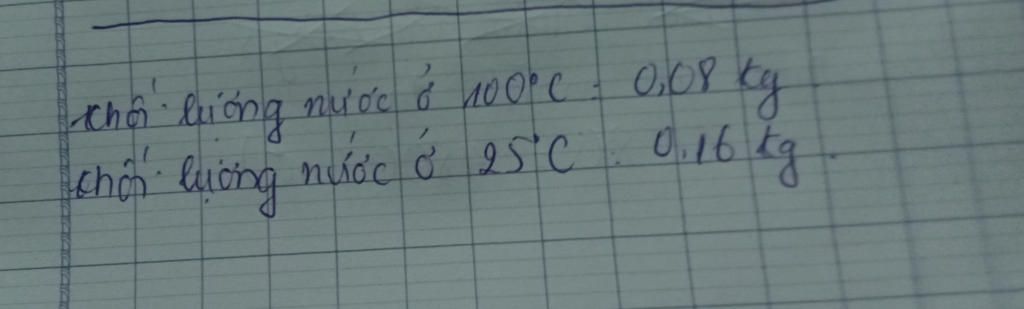 khối lượng nước ở 100°C : 0,08 kg
khối lượng nước ở 25°C : 0,16 kg.